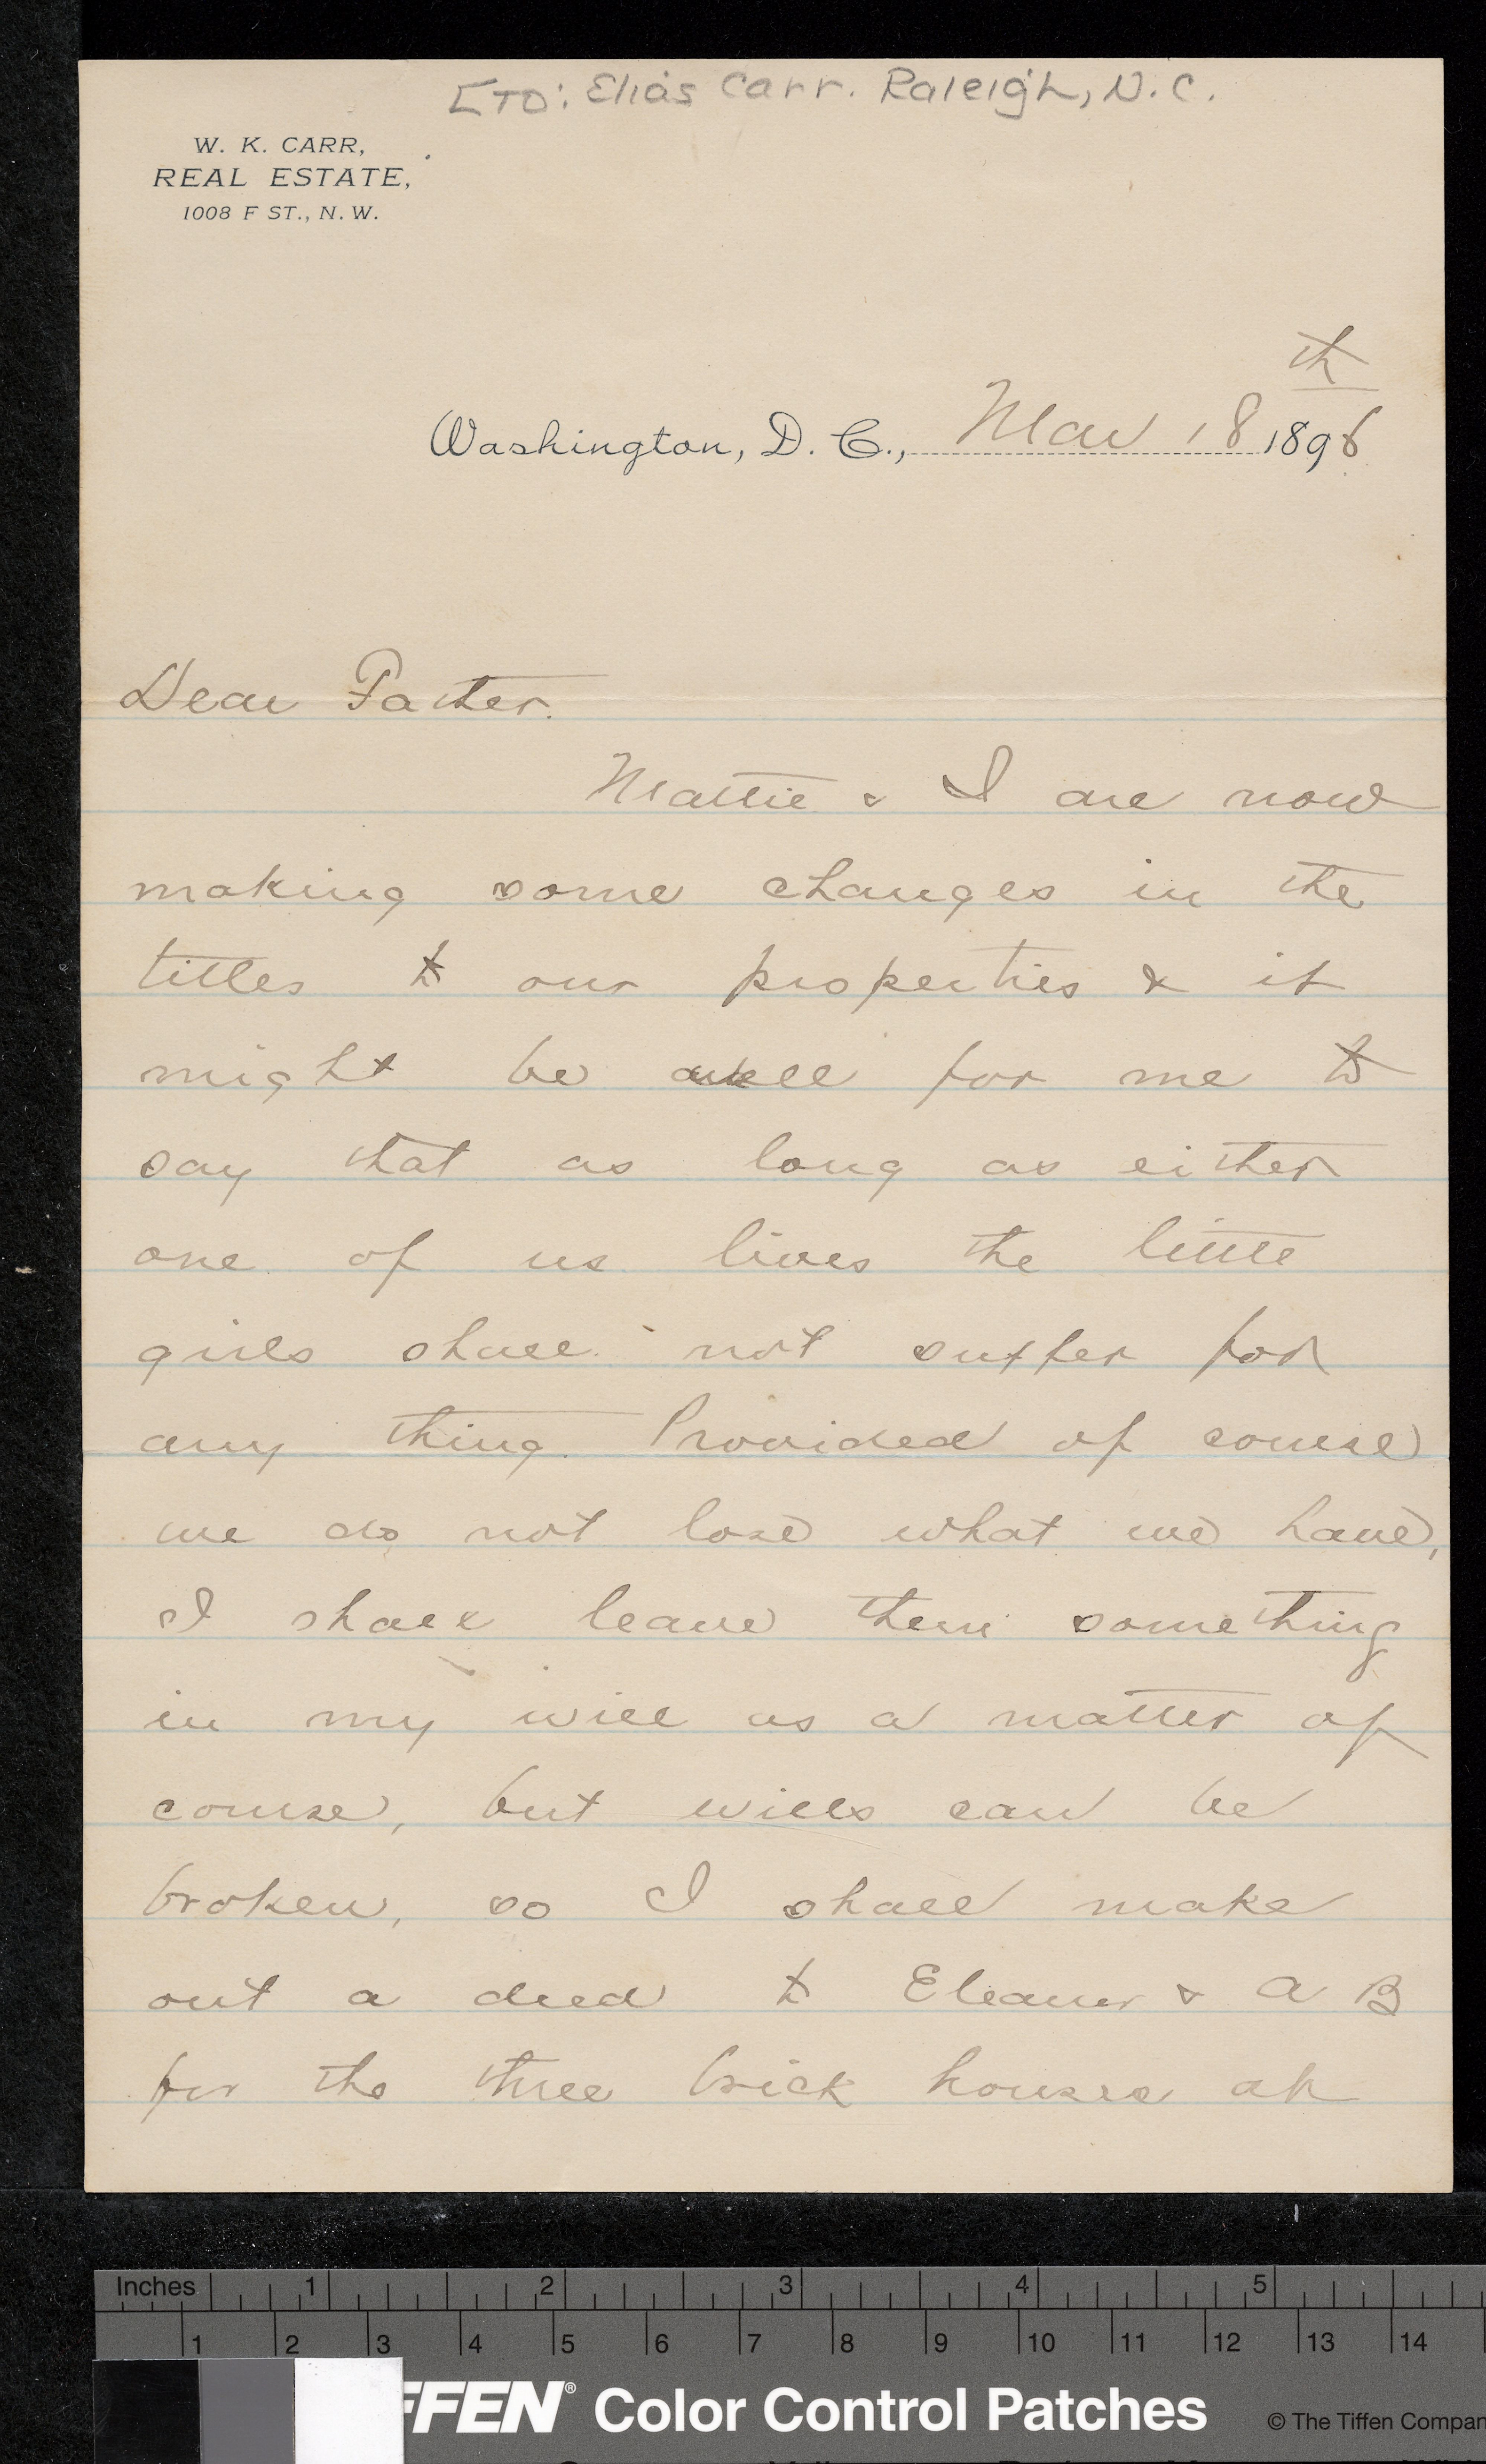 [TO: Elias Carr. Raleigh, N.C.
W. K. CARR,
REAL ESTATE,
1008 F ST., N. W.
th
Washington, D. C., Mar 18 1896
Dear Father.
Mattie & I are now
making some changes in the
titles to our properties & it
might be well for me to
say that as long as either
one of us lives the little
girls shall not suffer for
any thing. Provided of course
we do not lose what we have,
I shall leave them something
in my will as a matter of
course, but wills can be
broken, so I shall make
out a deed to Eleanor & A B
for the three brick houses at
Inches 1 2 3 4 5
1 2 3 4 5 6 7 8 9 10 11 12 13 14
FFEN® Color Control Patches
© The Tiffen Compan